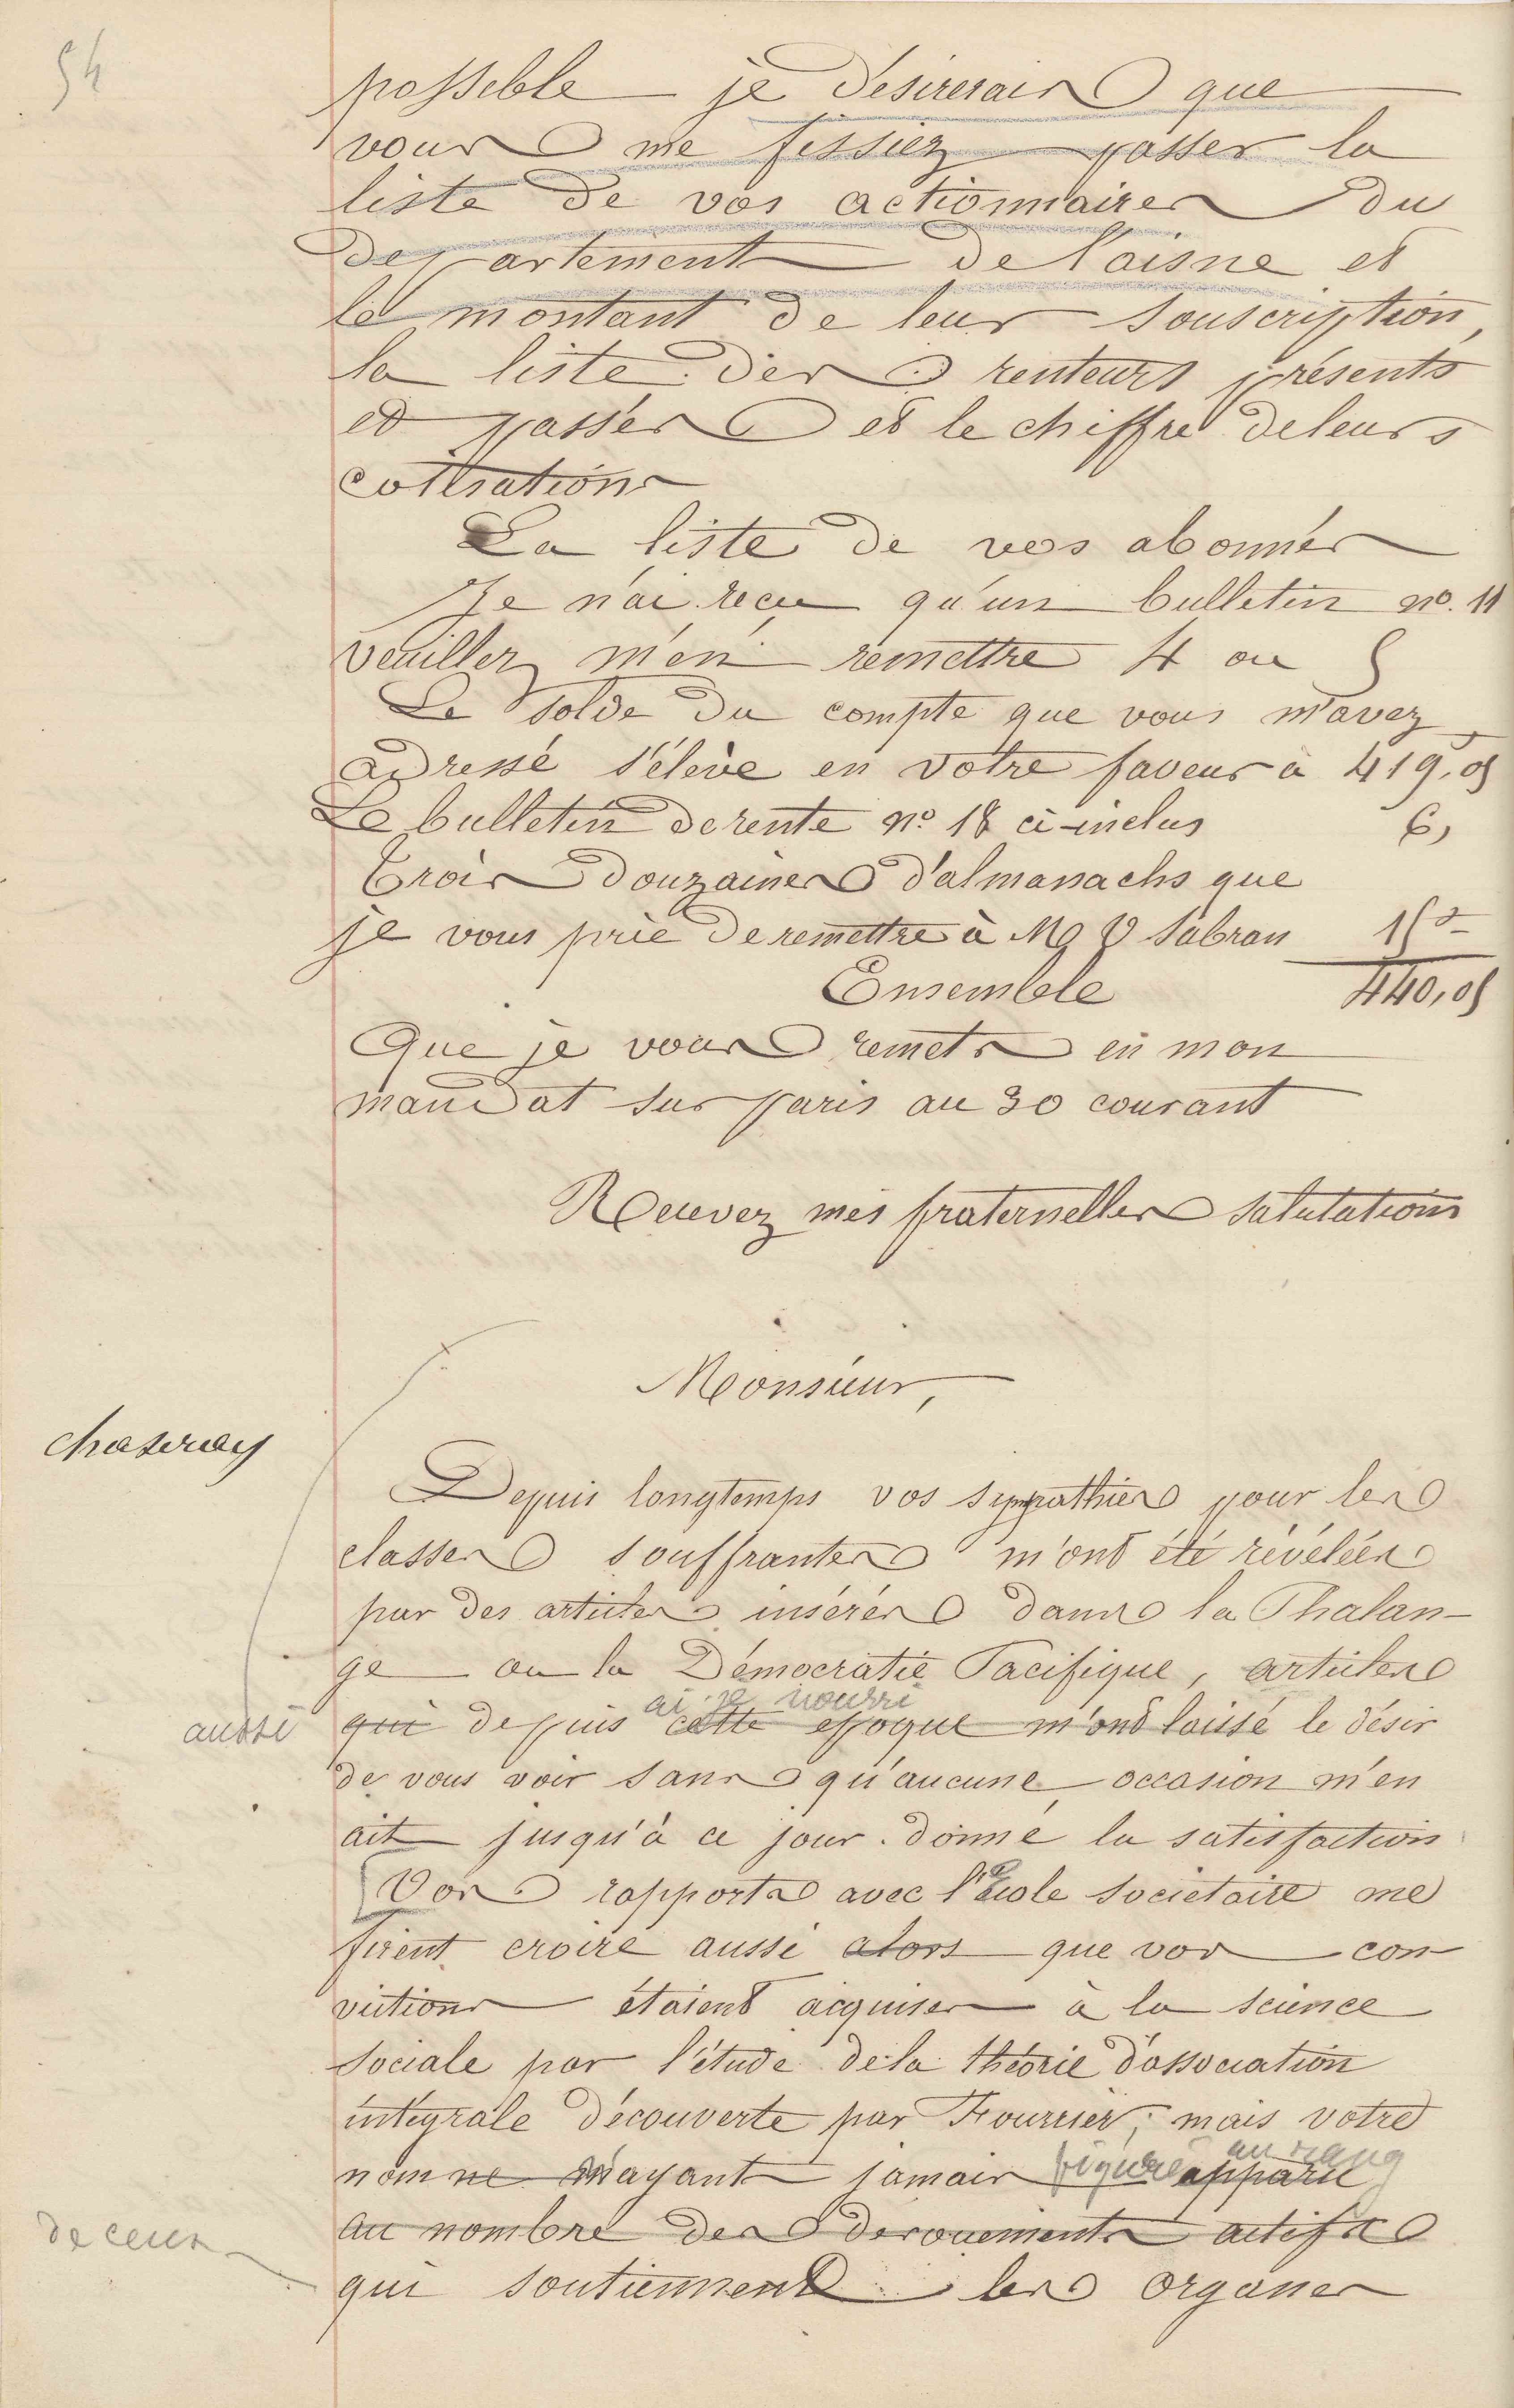 54
possible je désirerais que
vous me fissiez passer la
liste de vos actionnaires du
departement de l'aisne et
le montant de leur souscription,
la liste des renteurs présents
et passés et le chiffre de leurs
cotisations
La liste de vos abonnés
Je n'ai reçu qu'un bulletin no. 11
veuillez m'en remettre 4 ou 5
Le solde du compte que vous m'avez
adressé s'élève en votre faveur à 419,05
Le bulletin de rente no 18 ci-inclus 6,
Trois douzaines d'almanachs que
je vous prie de remettre à Mg V Sabran 15
Ensemble 440,05
Que je vous remets en mon
mandat sur paris au 30 courant
Recevez mes fraternelles salutations
Monsieur,
chaseray
Depuis longtemps vos sympathies pour les
classes souffrantes m'ont été révélées
par des articles insérés dans la Phalan-
ge ou la Démocratie Pacifique, articles
ai-je nourri
aussi qui depuis cette epoque m'ont laissé le désir
de vous voir sans qu'aucune occasion m'en
ait jusqu'à ce jour donné la satisfaction
Vos rapports avec l'école societaire me
firent croire aussi alors que vos con-
victions étaient acquises à la science
sociale par l'étude de la théorie d'association
intégrale découverte par Fourrier; mais votre
au rang
nom ne m'ayant jamais figuré apparu
de ceux au nombre des devouements actifs
qui soutiennent les organes